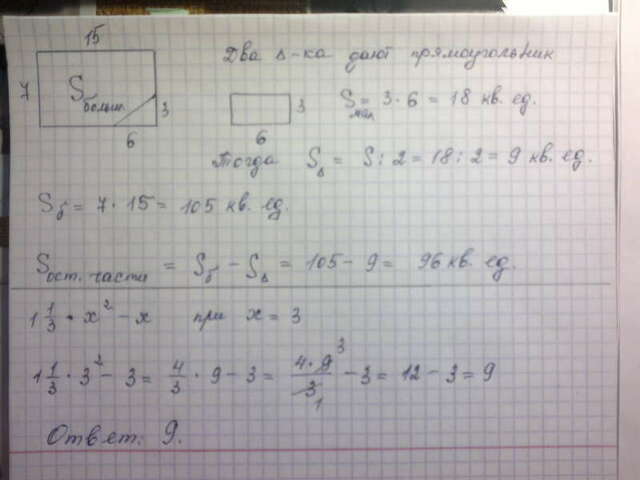 15
Два Δ-ка дают прямоугольник
7 Sбольш. 3
3 Sмал = 3·6 = 18 кв. ед.
6 6
Тогда SΔ = S:2 = 18:2 = 9 кв. ед.
Sб = 7·15 = 105 кв. ед.
Sост. части = Sб - SΔ = 105 - 9 = 96 кв. ед.
1 1/3 · x² - x при x = 3
1 1/3 · 3² - 3 = 4/3 · 9 - 3 = 4·9 3/3 1 - 3 = 12 - 3 = 9
Ответ: 9.